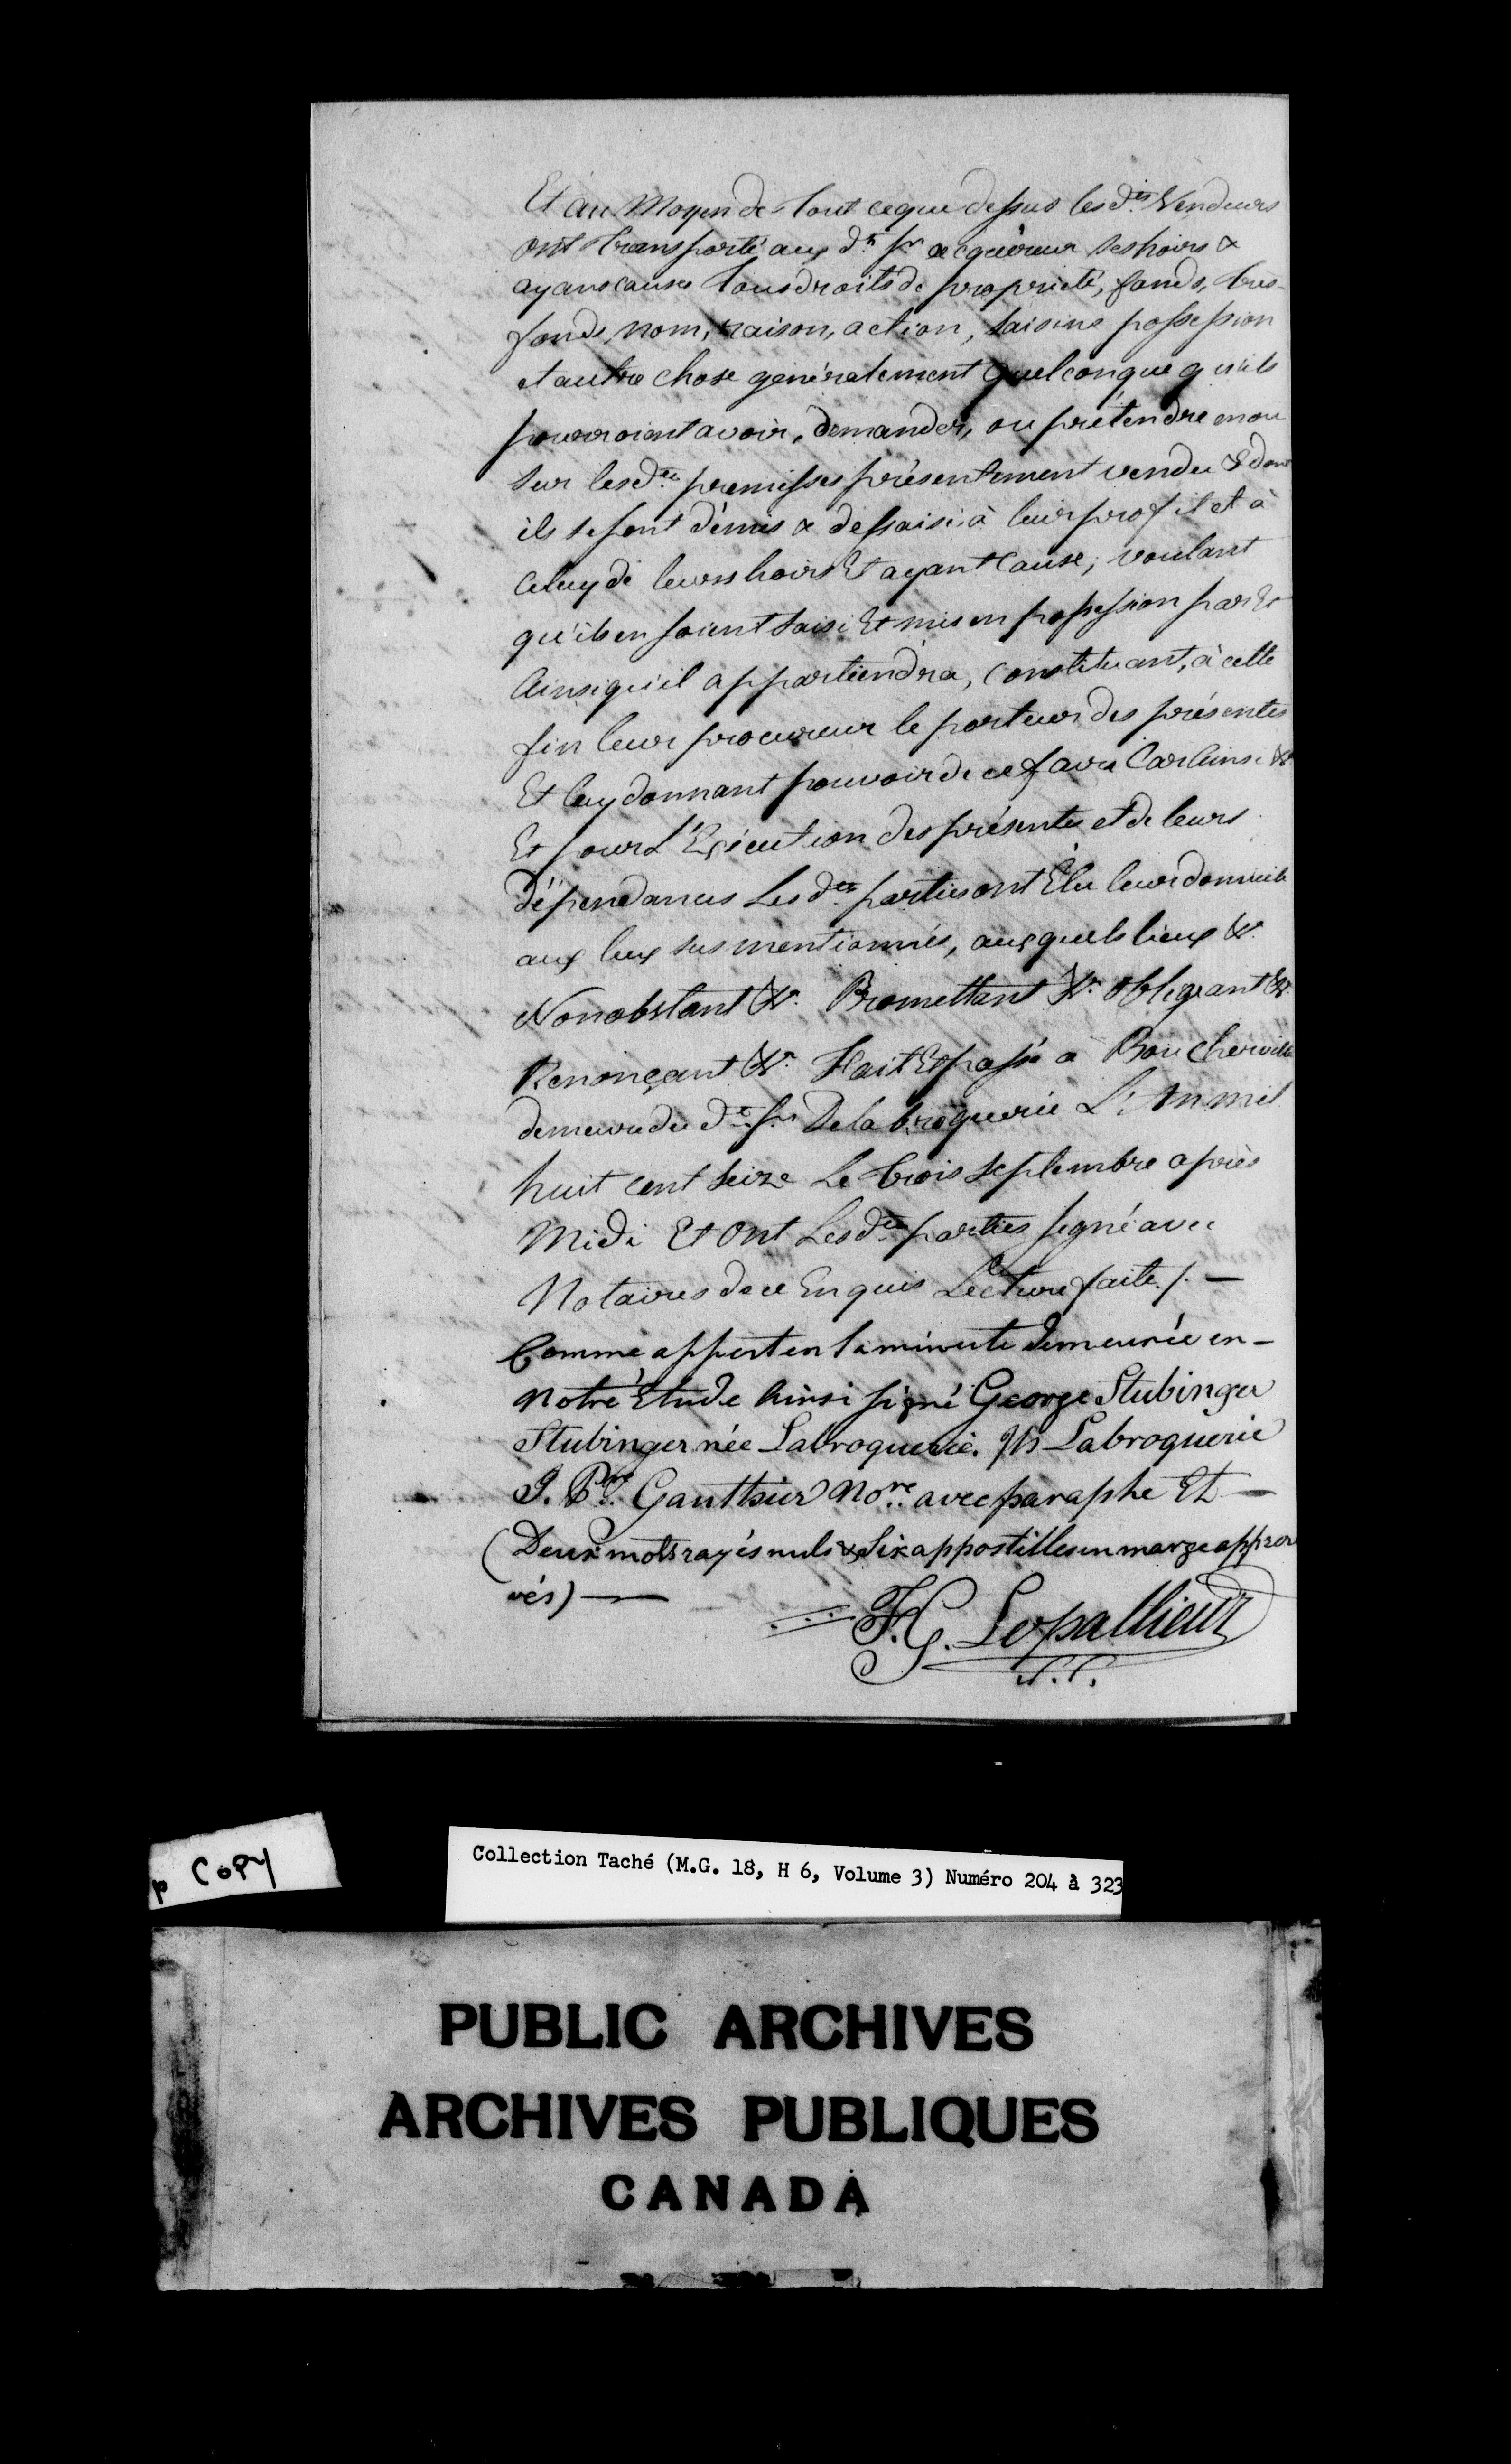 Et au Moyen de tout ceque dessus lesd.ts Vendeurs
ont transporté aux d.ts Sr acquéreur ses hoirs &
ayans causes tous droits de propriété, fonds, tres-
fonds, nom, raison, action, saisine possession
et autre chose généralement quelconque qu'ils
pourroient avoir, demander, ou prétendre en ou
sur lesd.tes premisses présentement vendu & dont
ils se sont démis & dessaisi à leur profit et à
celuy de leurs hoirs Et ayant cause, voulant
qu'ils en soient saisi Et mis en possession par Et
Ainsi qu'il appartiendra, constituant, à cette
fin leur procureur le porteur des présentes
Et luy donnant pouvoir de ce faire Car Ainsi &c.
Et pour L'Exécution des présentes et de leurs
dépendances Les d.tes parties ont Élu leur domicile
aux lieux sus mentionnés, auxquels lieux &c.
Nonobstant &c. Promettant &c. Obligeant &c.
Renonçant &c. Fait Et passé à Boucherville
demeure du d.t Sr Delabroquerie L'An mil
huit cent seize Le trois Septembre après
Midi Et Ont Lesd.tes parties signé avec
Notaires de ce Enquis Lecture faite /. —
Comme appert en la minute demeurée en-
Notre Étude Ainsi signé George Stubinger
Stubinger née Labroquerie. Jh Labroquerie
J. P.re Gauthier No.re avec paraphe Et —
(Deux mots rayés nuls & Six appostilles en marge approu
vés) —
F. G. Lepallieur
N.P.
COPY
Collection Taché (M.G. 18, H 6, Volume 3) Numéro 204 à 323
PUBLIC ARCHIVES
ARCHIVES PUBLIQUES
CANADA